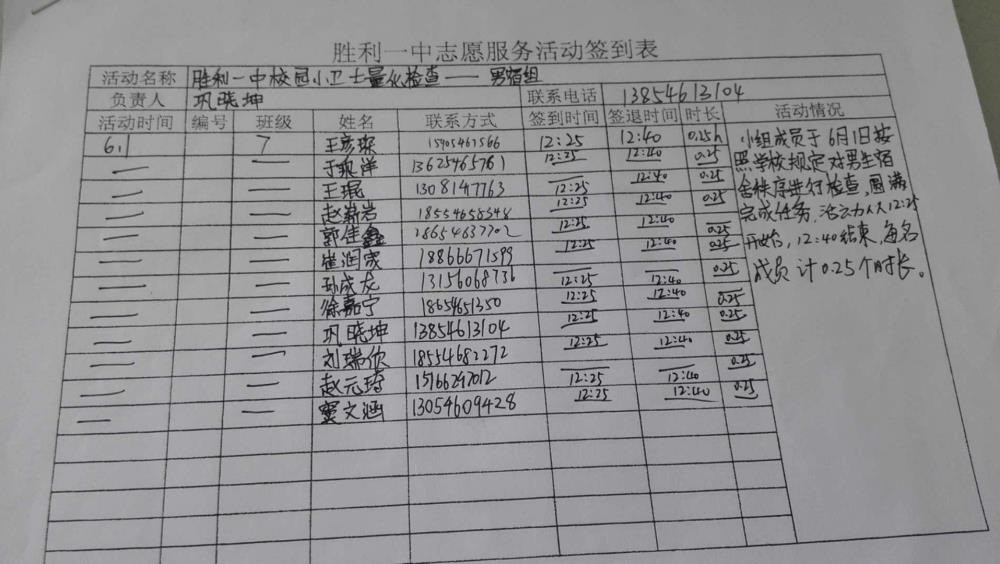 胜利一中志愿服务活动签到表
活动名称 胜利一中校园小卫士量化检查——男宿组
负责人 巩晓坤 联系电话 13854613104
活动时间 编号 班级 姓名 联系方式 签到时间 签退时间 时长 活动情况
6.1 7 王彦琛 15905461566 12:25 12:40 0.25h
于 12:25 12:40 0.25
王琨 13081497763 12:25 12:40 0.25
赵新岩 18554658548 12:25 12:40 0.25
郭佳鑫 12:25 12:40 0.25
崔润宬 18866671599 12:25 12:40 0.25
孙成龙 13156068736 12:25 12:40 0.25
徐嘉宁 18654651350 12:25 12:40 0.25
巩晓坤 13854613104 12:25 12:40 0.25
刘瑞欣 18554682272 12:25 12:40 0.25
赵元琦 15166297012 12:25 12:40 0.25
窦文涵 13054609428 12:25 12:40 0.25
小组成员于6月1日按
照学校规定对男生宿
舍秩序进行检查,圆满
完成任务,活动从12:25
开始,12:40结束,每名
成员计0.25个时长。